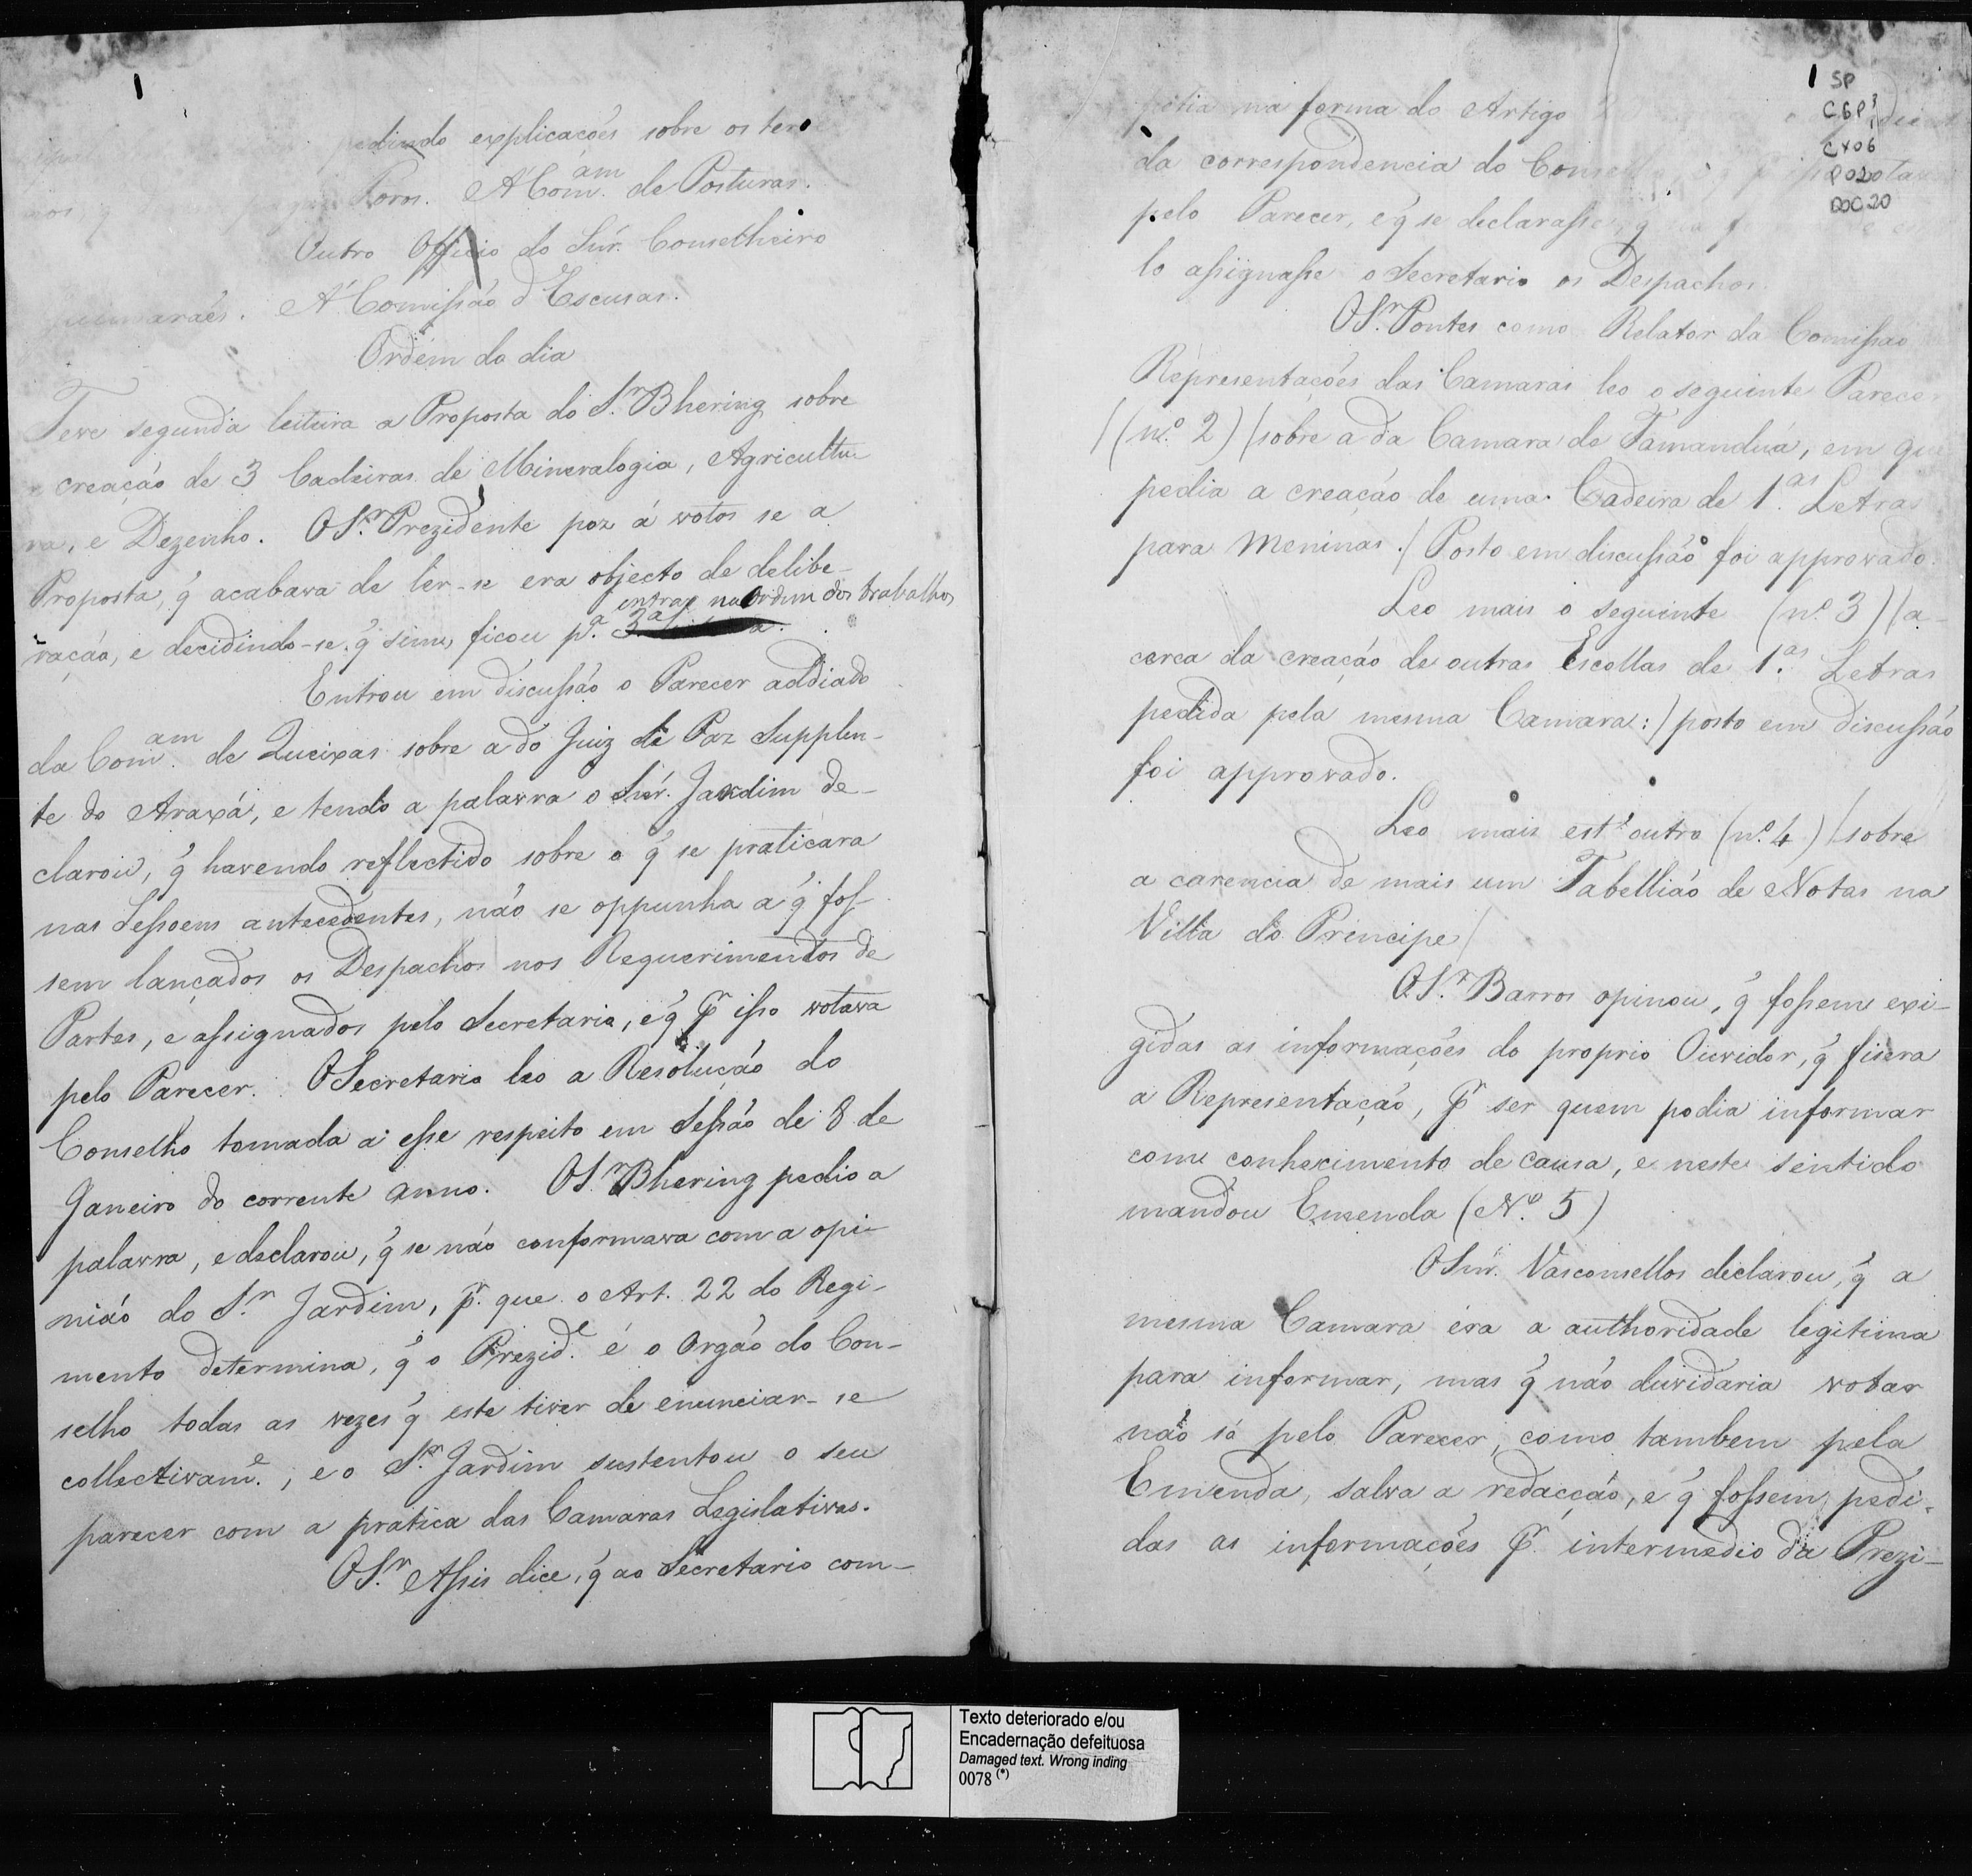 1
pedindo explicações sobre os ter
Foros. A Com.am de Posturas.
Outro Officio do Snr. Conselheiro
Guimarães. A' Comissão d'Escusas.
Ordem do dia
Teve segunda leitura a Proposta do S.r Bhering sobre
creação de 3 Cadeiras de Mineralogia, Agricultu-
ra, e Dezenho. O S.r Prezidente poz á votos se a
Proposta, q̃ acabava de ler-se era objecto de delibe-
entrar na Ordem dos trabalhos
ração, e decidindo-se q̃ sim, ficou p.a 3.a
Entrou em discussão o Parecer addiado
da Com.am de Queixas sobre a do Juiz de Paz Supplen-
te do Araxá, e tendo a palavra o Snr. Jardim de-
clarou, q̃ havendo reflectido sobre o q̃ se praticara
nas Sessoens antecedentes, não se oppunha a q̃ fos-
sem lançados os Despachos nos Requerimentos de
Partes, e assignados pelo Secretario, e q̃ pr isso votava
pelo Parecer. O Secretario leo a Resolução do
Conselho tomada a esse respeito em Sessão de 8 de
Janeiro do corrente anno. O S.r Bhering pedio a
palavra, e declarou, q̃ se não conformava com a opi-
nião do S.r Jardim, pr. que o Art. 22 do Regi-
mento determina, q̃ o Prezid.e é o Orgão do Con-
selho todas as vezes q̃ este tiver de enunciar-se
collectivam.e, e o S.r Jardim sustentou o seu
parecer com a pratica das Camaras Legislativas.
O S.r Assis dice, q̃ ao Secretario com-
1
SP
CGP³
CX06
P020
DOC20
petia na forma do Artigo
da correspondencia do
pelo Parecer, e q̃ se declarasse
lo assignasse o Secretario os Despachos.
O S.r Pontes como Relator da Comissão
Representações das Camaras leo o seguinte Parecer
/(n.o 2)/ sobre a da Camara de Tamanduá, em que
pedia a creação de uma Cadeira de 1.as Letras
para Meninas./ Posto em discussão foi approvado.
Leo mais o seguinte (n.o 3)/ a-
cerca da creação de outras Escollas de 1.as Letras
pedida pela mesma Camara:/ posto em discussão
foi approvado.
Leo mais est'outro (n.o 4)/ sobre
a carencia de mais um Tabellião de Notas na
Villa do Principe/
O S.r Barros opinou, q̃ fossem exi-
gidas as informações do proprio Ouvidor, q̃ fisera
a Representação, pr ser quem podia informar
com conhecimento de causa, e neste sentido
mandou Emenda (N.o 5)
O Snr. Vasconsellos declarou, q̃ a
mesma Camara éra a authoridade legitima
para informar, mas q̃ não duvidaria votar
não só pelo Parecer, como tambem pela
Emenda, salva a redacção, e q̃ fossem pedi-
das as informações pr. intermedio da Prezi-
Texto deteriorado e/ou
Encadernação defeituosa
Damaged text. Wrong inding
0078 (*)